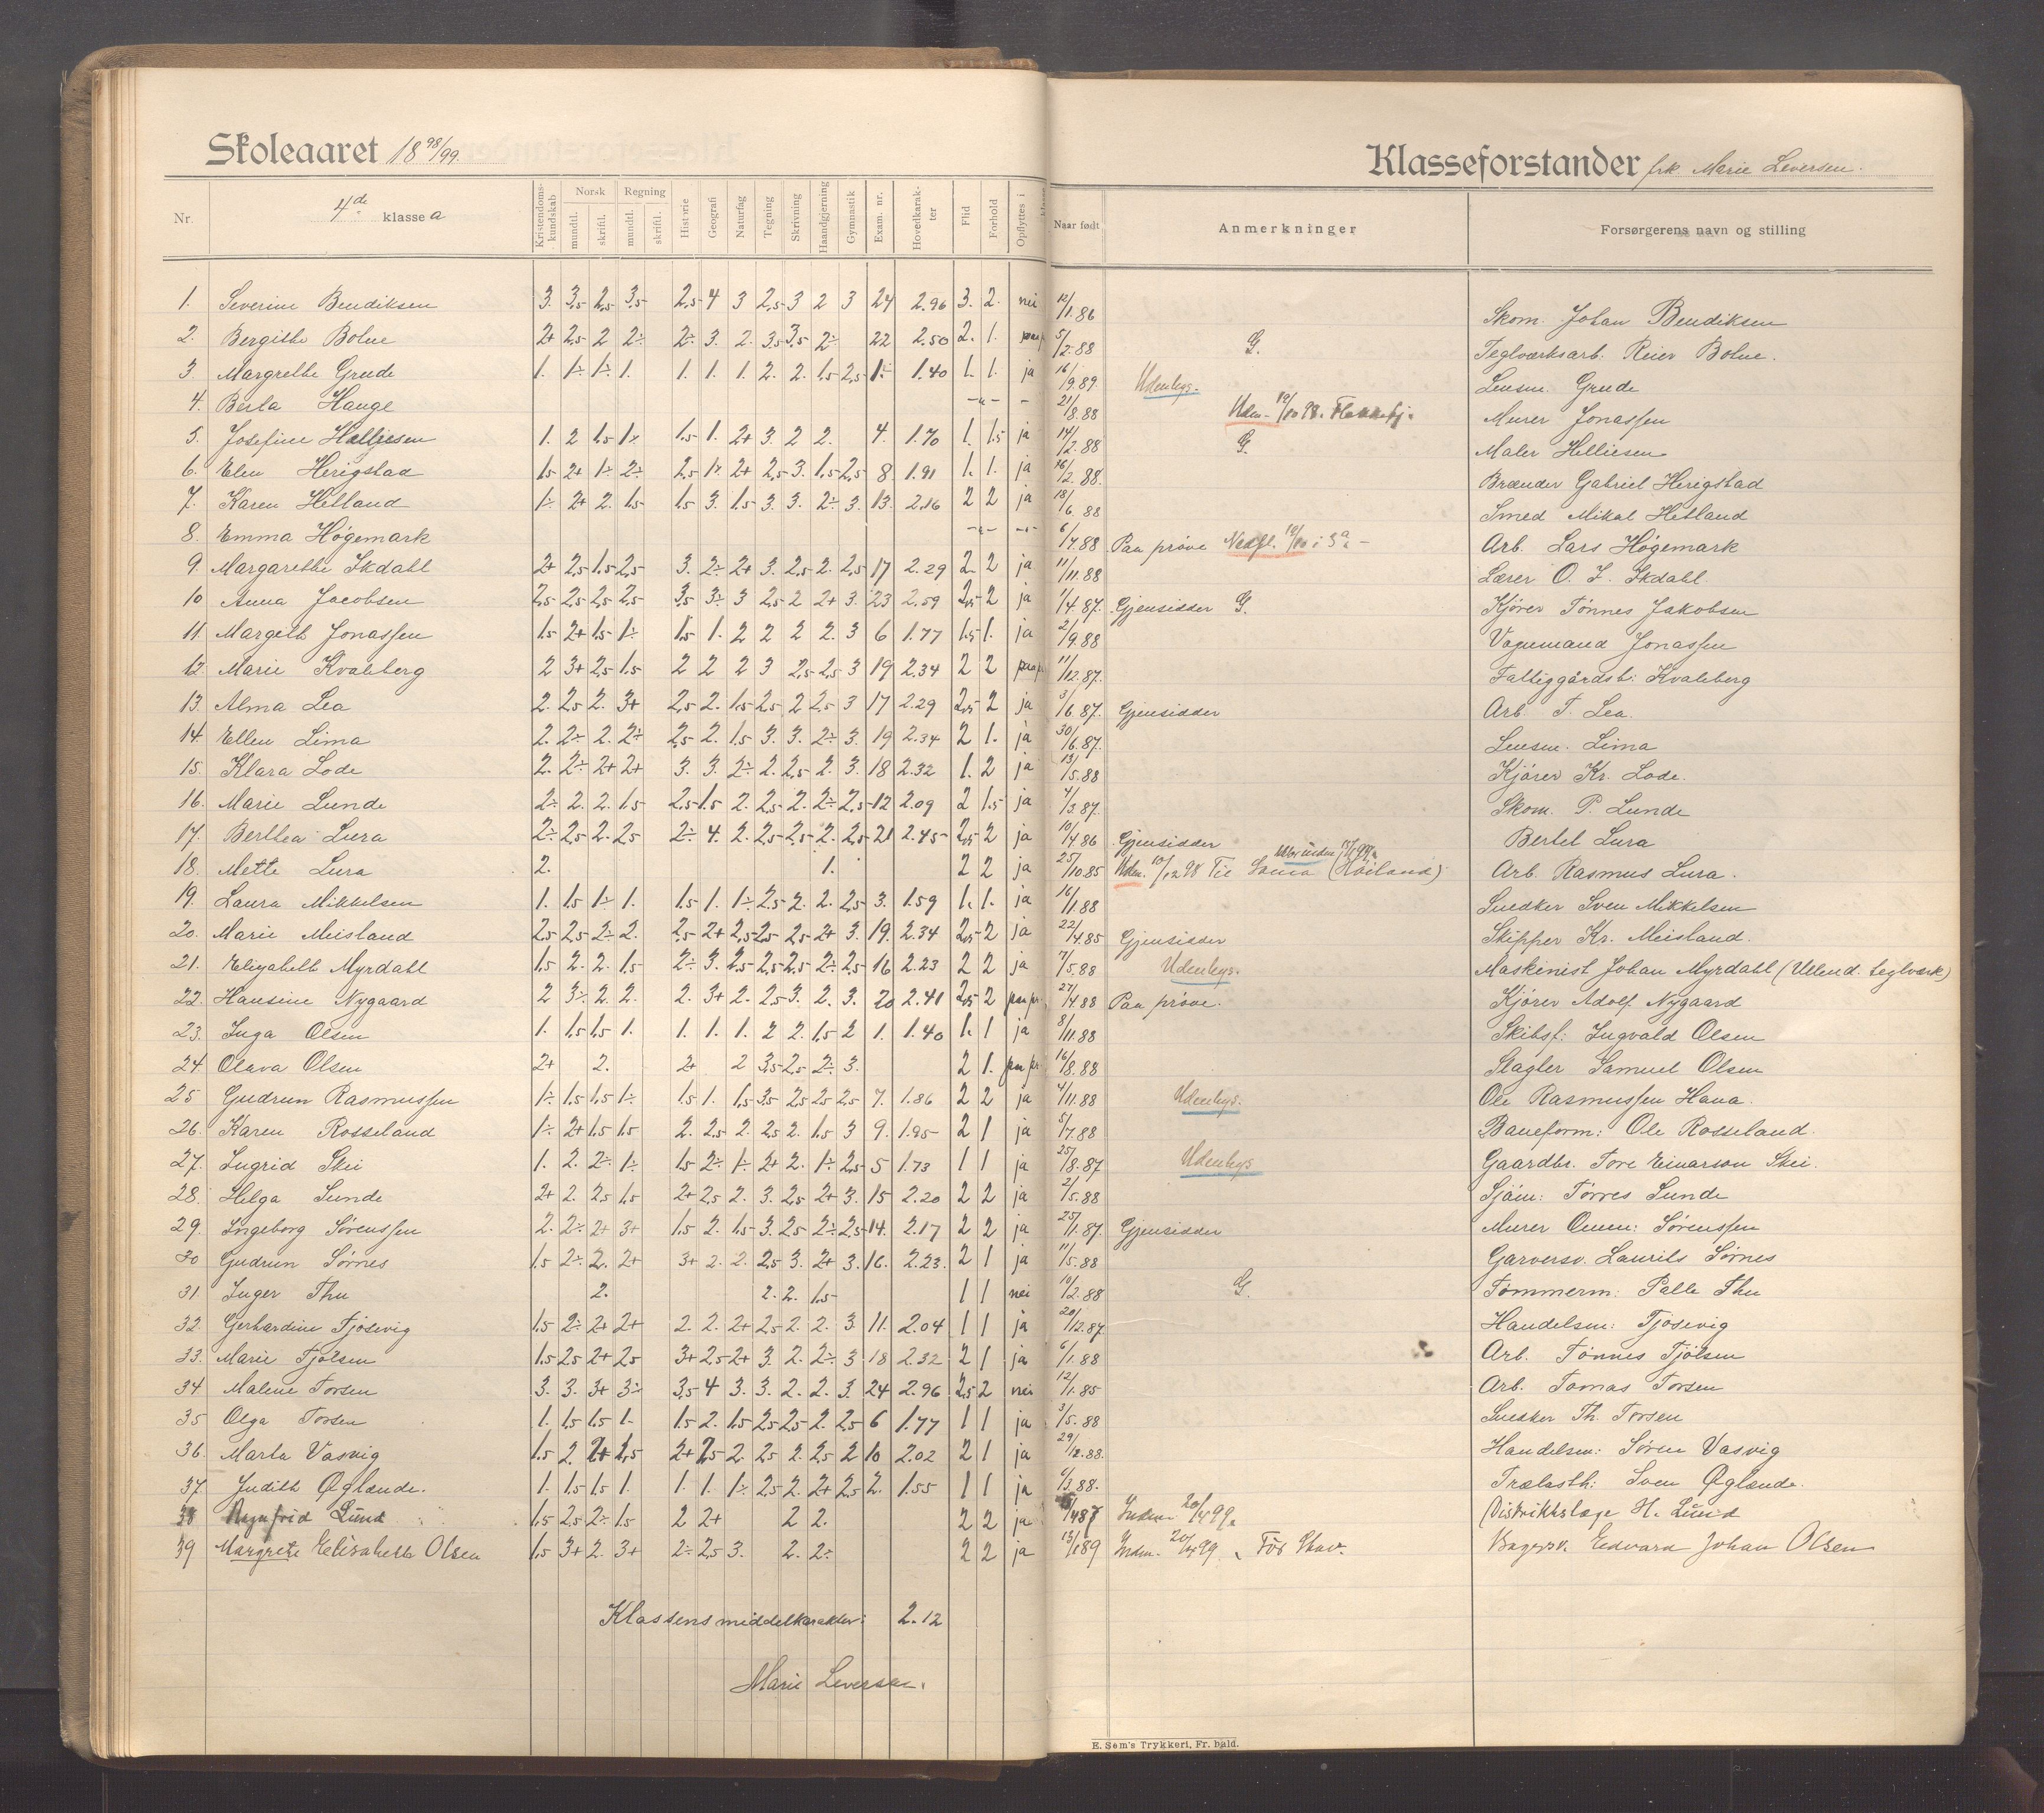 Skoleaaret 18 98/99.
Klasseforstander frk. Marie Leversen.
Nr. 4de klasse a Kristendomskundskab Norsk mundtl. skriftl. Regning mundtl. skriftl. Historie Geografi Naturfag Tegning Skrivning Haandgjerning Gymnastik Exam. nr. Hovedkarakter Flid Forhold Opflyttes i Naar født Anmerkninger Forsørgerens navn og stilling
1. Severine Bendiksen 3. 3,5 2,5 3,5 2,5 4 3 2,5 3 2 3 24 2.96 3. 2. nei 12/1.86 Skom. Johan Bendiksen
2. Bergithe Bolne 2+ 2,5 2 2÷ 2÷ 3. 2. 3,5 3,5 2÷ 22 2.50 2. 1. 5/2.88 G. Teglværksarb. Reier Bolne.
3. Margrethe Grude 1. 1÷ 1÷ 1. 1. 1. 1. 2. 2. 1,5 2,5 1. 1.40 1. 1. ja 16/9.89. Udenbys. Lensm. Grude
4. Berta Hauge -"- - 21/8.88 Uden. 10/10 98. Flekkefj. Murer Jonassen
5. Josefine Helliesen 1. 2 1,5 1÷ 1,5 1. 2+ 3. 2 2. 4. 1.70 1. 1,5 ja 14/2.88 G. Maler Helliesen
6. Elen Herigstad 1,5 2+ 1÷ 2÷ 2,5 1÷ 2+ 2,5 3. 1,5 2,5 8. 1.91 1. 1. ja 16/2.88. Brænder Gabriel Herigstad
7. Karen Hetland 1÷ 2+ 2. 1,5 1,5 3. 1,5 3. 3. 2÷ 3. 13. 2.16 2 2 ja 18/6.88 Smed Mikal Hetland
8. Emma Høgemark -"- -"- 6/7.88 Paa prøve Nedfl. 10/10 i 3a - Arb. Lars Høgemark
9. Margarethe Ikdahl 2+ 2,5 1,5 2,5 3. 2÷ 2+ 3. 2,5 2. 2,5 17 2.29 2. 2 ja 11/11.88 Lærer O. I. Ikdahl.
10 Anna Jacobsen 2,5 2,5 2,5 2,5 3,5 3÷ 3 2,5 2 2+ 3. 23 2.59 2,5 2 ja 1/4.87. Gjensidder G. Kjører Tønnes Jakobsen
11. Margith Jonassen 1,5 2+ 1,5 1÷ 1,5 1. 2 2 2 2. 3 6 1.77 1,5 1. ja 2/9.88 Vognmand Jonassen
12. Marie Kvaleberg 2 3+ 2,5 1,5 2 2 2 3 2,5 2,5 3 19 2.34 2 2 paa pr. 11/12.87. Fattiggårdsb. Kvaleberg
13. Alma Lea 2. 2,5 2. 3+ 2,5 2. 1,5 2,5 2 2,5 3 17 2.29 2,5 2 ja 3/6.87. Gjensidder Arb. T. Lea.
14. Ellen Lima 2. 2÷ 2. 2÷ 2,5 2. 1,5 3. 3. 2÷ 3. 19 2.34 2 1. ja 30/6.87. Lensm. Lima
15. Klara Lode 2. 2÷ 2+ 2+ 3. 3. 2÷ 2. 2,5 2. 3. 18 2.32 1. 2 ja 13/5.88 Kjører Kr. Lode.
16. Marie Lunde 2÷ 2. 2. 1,5 2,5 1,5 2. 2,5 2. 2÷ 2,5 12 2.09 2 1,5 ja 4/3.87. Skom. P. Lunde
17. Berthea Lura 2÷ 2,5 2. 2,5 2÷ 4. 2. 2,5 2,5 2. 2,5 21 2.45 2,5 2 ja 10/4.86 Gjensidder Bertel Lura
18. Mette Lura 2. 1. 2 2 ja 25/10.85 Uden. 10/12 98 Til Soma (Høiland) Arb. Rasmus Lura.
19. Laura Mikkelsen 1. 1,5 1÷ 1. 1,5 1. 1÷ 2,5 2. 2. 2,5 3. 1.59 1. 1. ja 16/1.88 Snedker Sven Mikkelsen
20. Marie Meisland 2,5 2,5 2÷ 2. 2,5 2+ 2,5 2,5 2,5 2+ 3. 19. 2.34 2,5 2 ja 22/4.85 Gjensidder Skipper Kr. Meisland.
21. Elizabeth Myrdahl 1,5 2. 2. 1,5 2÷ 3. 2,5 2,5 2,5 2÷ 2,5 16 2.23 2 2 ja 7/5.88 Udenbys. Maskinist Johan Myrdahl (Ullend. teglværk)
22. Hansine Nygaard 2 3÷ 2. 2. 2. 3+ 2. 2,5 3. 2. 3. 20 2.41 2,5 2 paa pr. 27/4.88 Paa prøve. Kjører Adolf Nygaard
23. Inga Olsen 1. 1,5 1,5 1. 1. 1. 1. 2 2. 1,5 2 1. 1.40 1. 1 ja 8/11.88 Skibsf. Ingvald Olsen
24 Olava Olsen 2+ 2. 2+ 2 3,5 2,5 2÷ 3. 2 1. paa pr. 16/8.88 Slagter Samuel Olsen
25 Gudrun Rasmussen 1÷ 1,5 1,5 1÷ 1,5 1. 1,5 3,5 2,5 2,5 2,5 7. 1.86 2 2 ja 4/11.88 Udenbys. Ole Rasmussen Hana.
26. Karen Rosseland 1÷ 2+ 1,5 1,5 2. 2,5 2. 2,5 2. 1,5 3 9. 1.95 2 1 ja 5/7.88 Baneform: Ole Rosseland.
27. Ingrid Skei 1. 2. 2÷ 1÷ 1,5 2÷ 1÷ 2+ 2. 1÷ 2,5 5 1.73 1 1 ja 25/8.87 Udenbys Gaardbr. Tore Einarson Skei.
28. Helga Sunde 2+ 2. 2,5 1,5 2+ 2,5 2. 3. 2,5 2+ 3. 15 2.20 2 2 ja 2/5.88 Sjøm: Tørres Sunde
29. Ingeborg Sørenssen 2. 2÷ 2+ 3+ 1,5 2. 1,5 3. 2,5 2÷ 2,5 14. 2.17 2 2 ja 25/1.87. Gjensidder Murer Omun: Sørenssen
30 Gudrun Sørnes 1,5 2÷ 2. 2+ 3+ 2. 2. 2,5 3. 2+ 3. 16. 2.23. 2 1 ja 11/5.88 Garversv. Laurits Sørnes
31. Inger Thu 2. 2. 2. 1,5 1 1 nei 10/2.88 G. Tømmerm: Palle Thu
32. Gerhardine Tjøsevig 1,5 2÷ 2+ 2+ 2. 2. 2+ 2,5 2. 2. 3. 11. 2.04 1 1 ja 20/12.87. Handelsm: Tjøsevig
33. Marie Tjølsen 1,5 2,5 2+ 2,5 3+ 2,5 2+ 3. 2. 2÷ 3 18 2.32 2 1 ja 6/1.88 Arb. Tønnes Tjølsen
34 Malene Torsen 3. 3. 3+ 3÷ 3,5 4 3. 3. 2. 2. 3. 24 2.96 2,5 2 nei 12/1.85 Arb. Tomas Torsen
35 Olga Torsen 1. 1,5 1,5 1. 1,5 2. 1,5 2,5 2,5 2. 2,5 6 1.77 1 1 ja 3/5.88 Snedker Th. Torsen
36. Marta Vasvig 1,5 2. 2+ 1,5 2+ 2,5 2. 2,5 2. 2,5 2 10 2.02 2 1 ja 29/12.88. Handelsm: Søren Vasvig
37. Judith Øglænde. 1. 1,5 1,5 1. 1. 1. 1÷ 2,5 2. 2+ 2,5 2. 1.55 1 1 ja 6/3.88. Trælasth: Sven Øglænde.
38 Ragnfrid Lund 1,5 2,5 2÷ 1,5 2 2+ 2 2. 2 2 ja /487 Indm. 20/4 99. Distriktslæge H. Lund
39 Margrete Elisabeth Olsen 1,5 3+ 2. 3+ 2÷ 2,5 3. 2. 2÷ 2 2 ja 13/1 89 Indm. 20/4 99. Bagersv. Edvard Johan Olsen
Klassens middelkarakter: 2.12
Marie Leversen.
E. Sem's Trykkeri, Fr. hald.